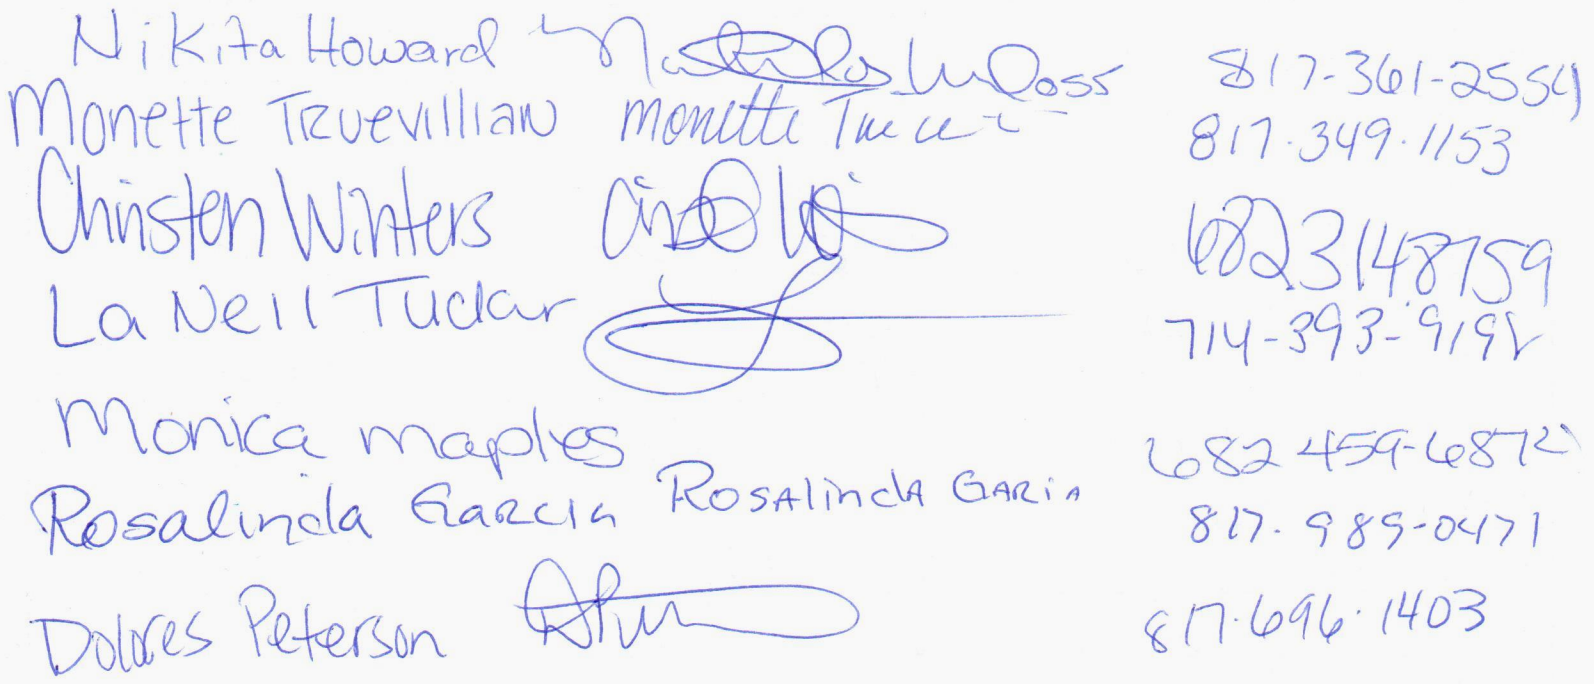 Nikita Howard 817-361-2554
Monette Truevillian Monette 817.349.1153
Christen Winters 6823148759
La Neill Tucker 714-393-9198
Monica Maples 682 459-6872
Rosalinda Garcia Rosalinda Garia 817-989-0471
Dolores Peterson 817.696.1403